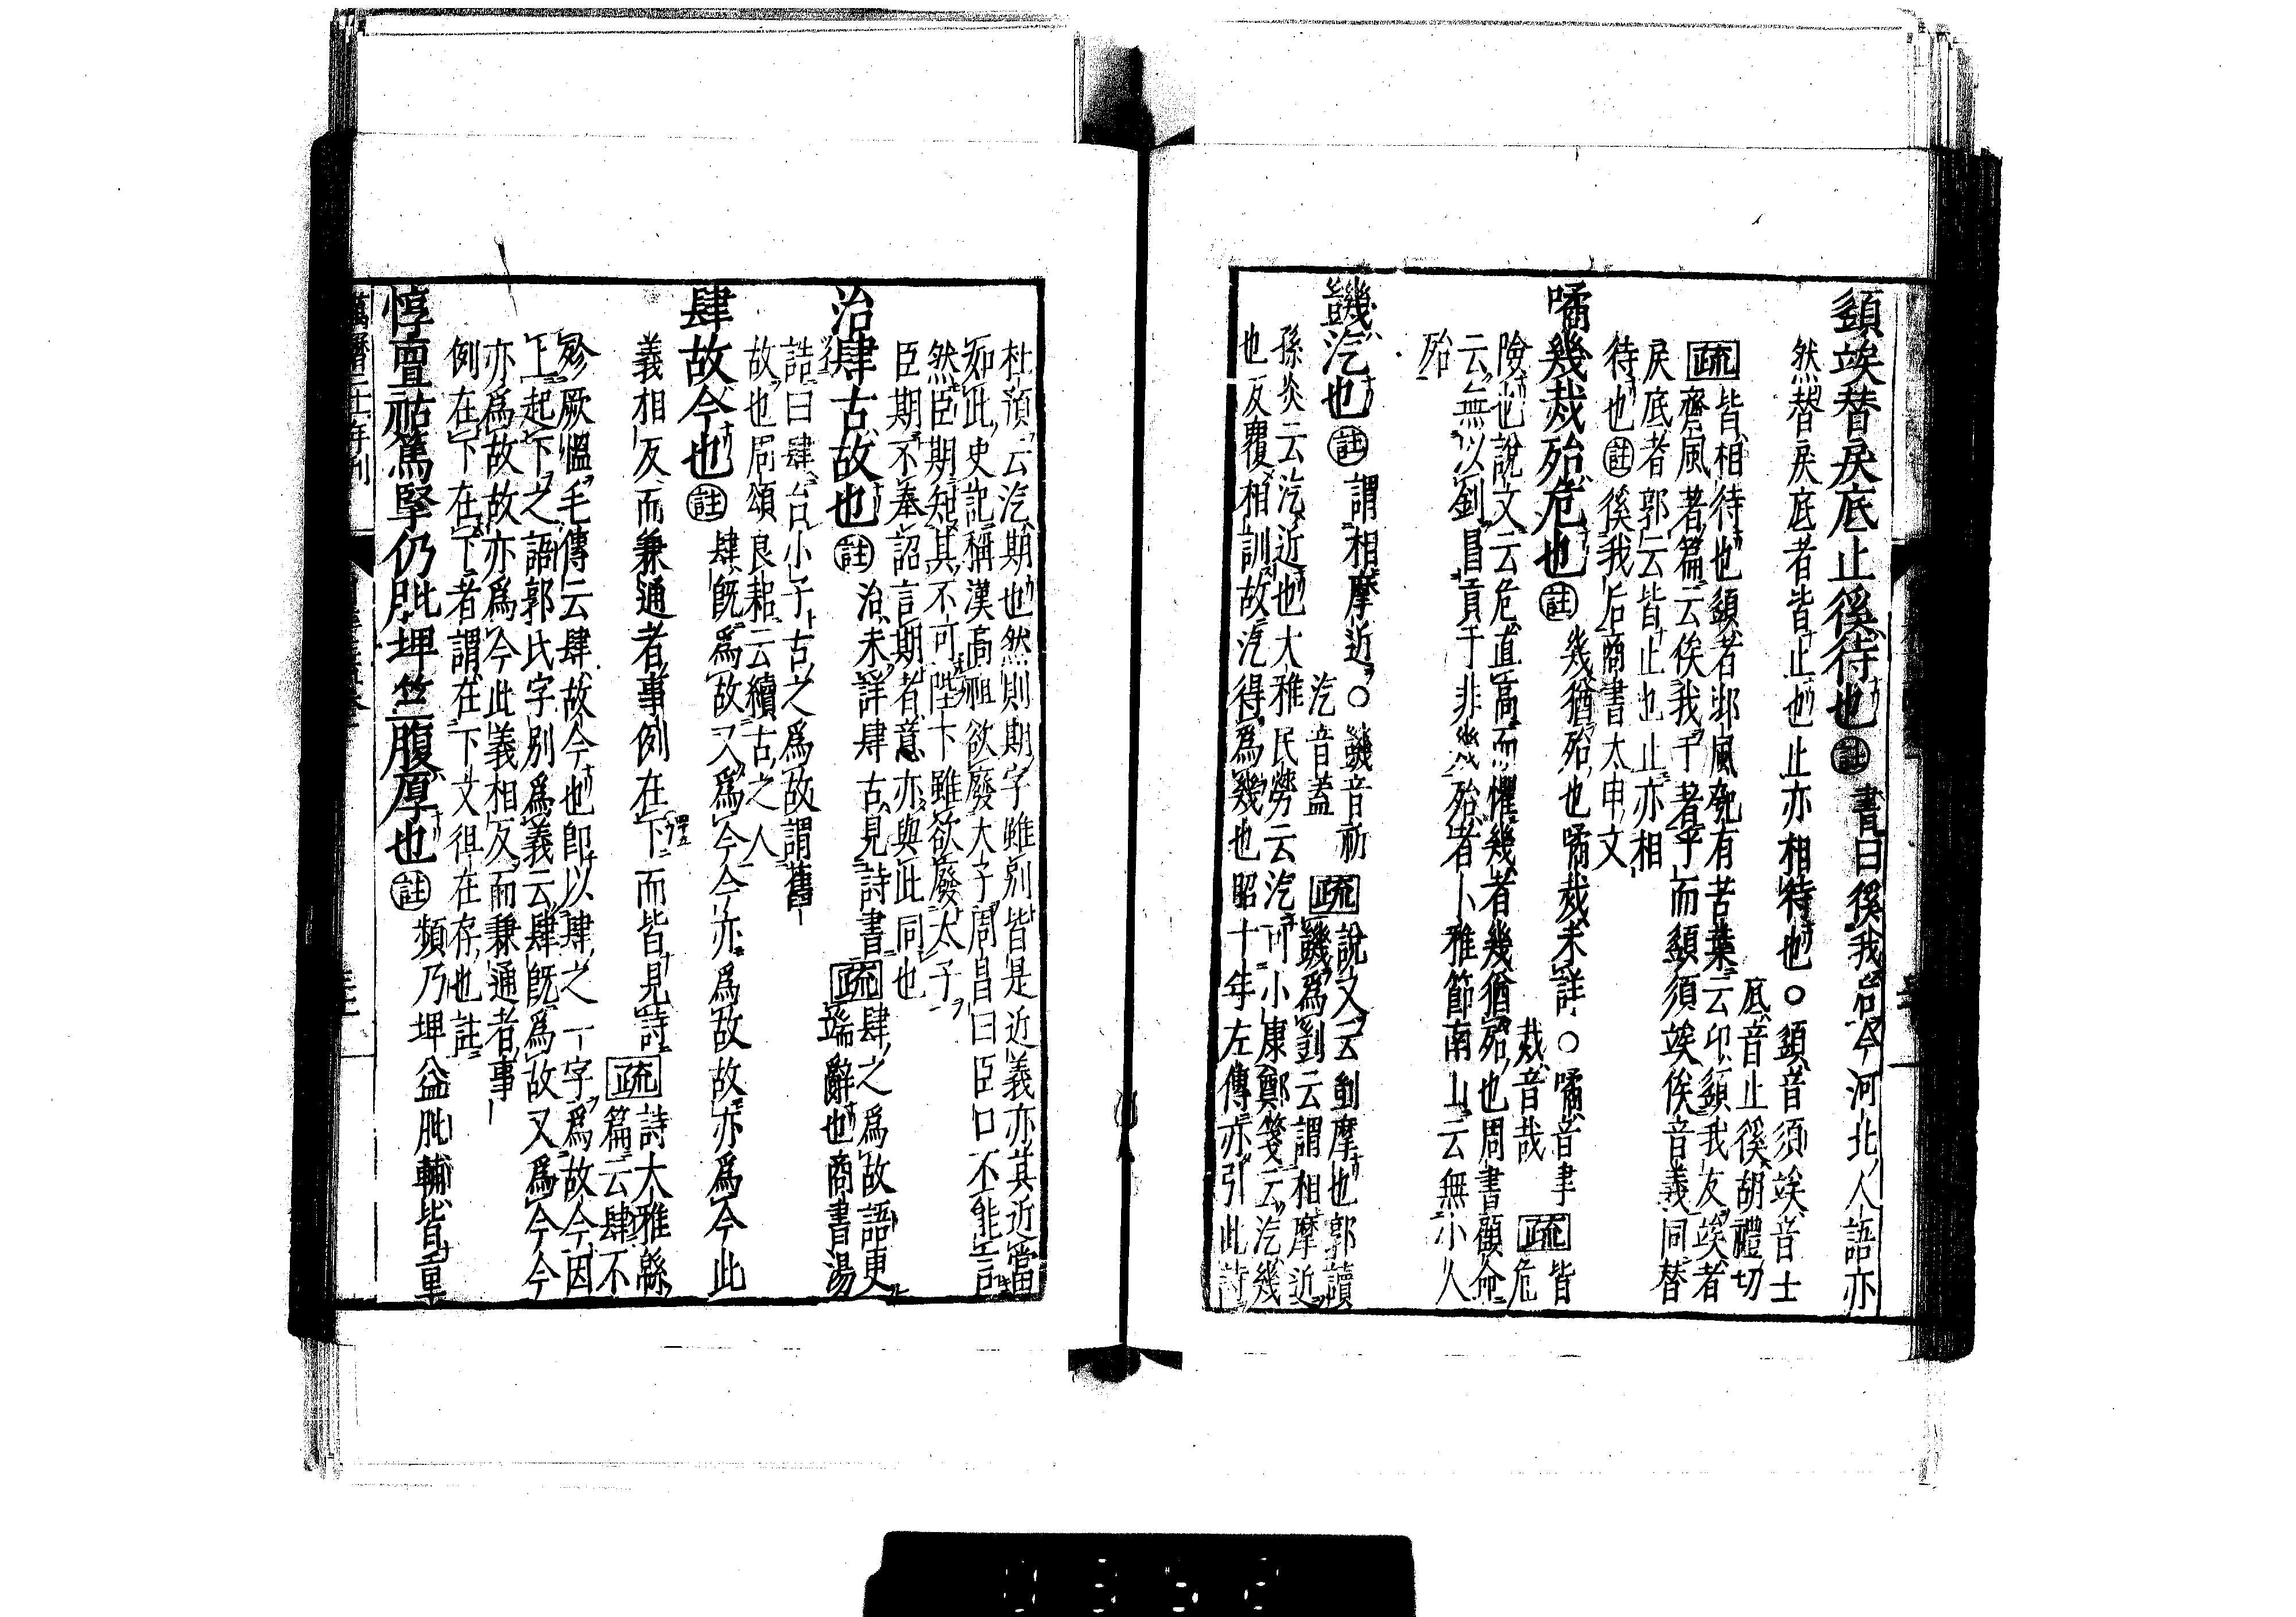 頾竢替戾底止徯待也註書曰徯我后今河北人語亦
然替戾底者皆止也止亦相待也○頾音須竢音士
底音止徯胡禮切
疏皆相待也頾者邶風匏有苦葉云卬頾我友竢者
齊風著篇云俟我于著乎而頾須竢俟音義同替
戾底者郭云皆止也止亦相
待也註徯我后商書太申文
噊幾烖殆危也註幾猶殆也噊烖未詳○噊音聿
烖音哉
疏皆危
險也說文云危直高而懼幾者幾猶殆也周書顧命
云無以釗冒貢于非幾殆者小雅節南山云無小人
殆
𧰙汔也註謂相摩近○𧰙音祈
汔音蓋
疏說文云刏摩也郭讀
𧰙爲刏云謂相摩近
孫炎云汔近也大雅民勞云汔可小康鄭箋云汔幾
也反覆相訓故汔得爲幾也昭十年左傳亦引此詩
杜預云汔期也然則期字雖別皆是近義亦其近當
如此史記稱漢高祖欲廢太子周昌曰臣口不能言
然臣期知其不可陛下雖欲廢太子
臣期不奉詔言期者意亦與此同也
治肆古故也註治未詳肆古見詩書疏肆之爲故語更
端辭也商書湯
誥曰肆台小子古之爲故謂舊
故也周頌良耜云續古之人
肆故今也註肆旣爲故又爲今今亦爲故故亦爲今此
義相反而兼通者事例在下而皆見詩
疏詩大雅緜
篇云肆不
殄厥慍毛傳云肆故今也卽以肆之一字爲故今因
上起下之語郭氏字別爲義云肆旣爲故又爲今今
亦爲故故亦爲今此義相反而兼通者事
例在下在下者謂在下文徂在存也註
惇亶祜篤堅仍肶埤竺腹厚也註頻乃埤益肶輔皆重